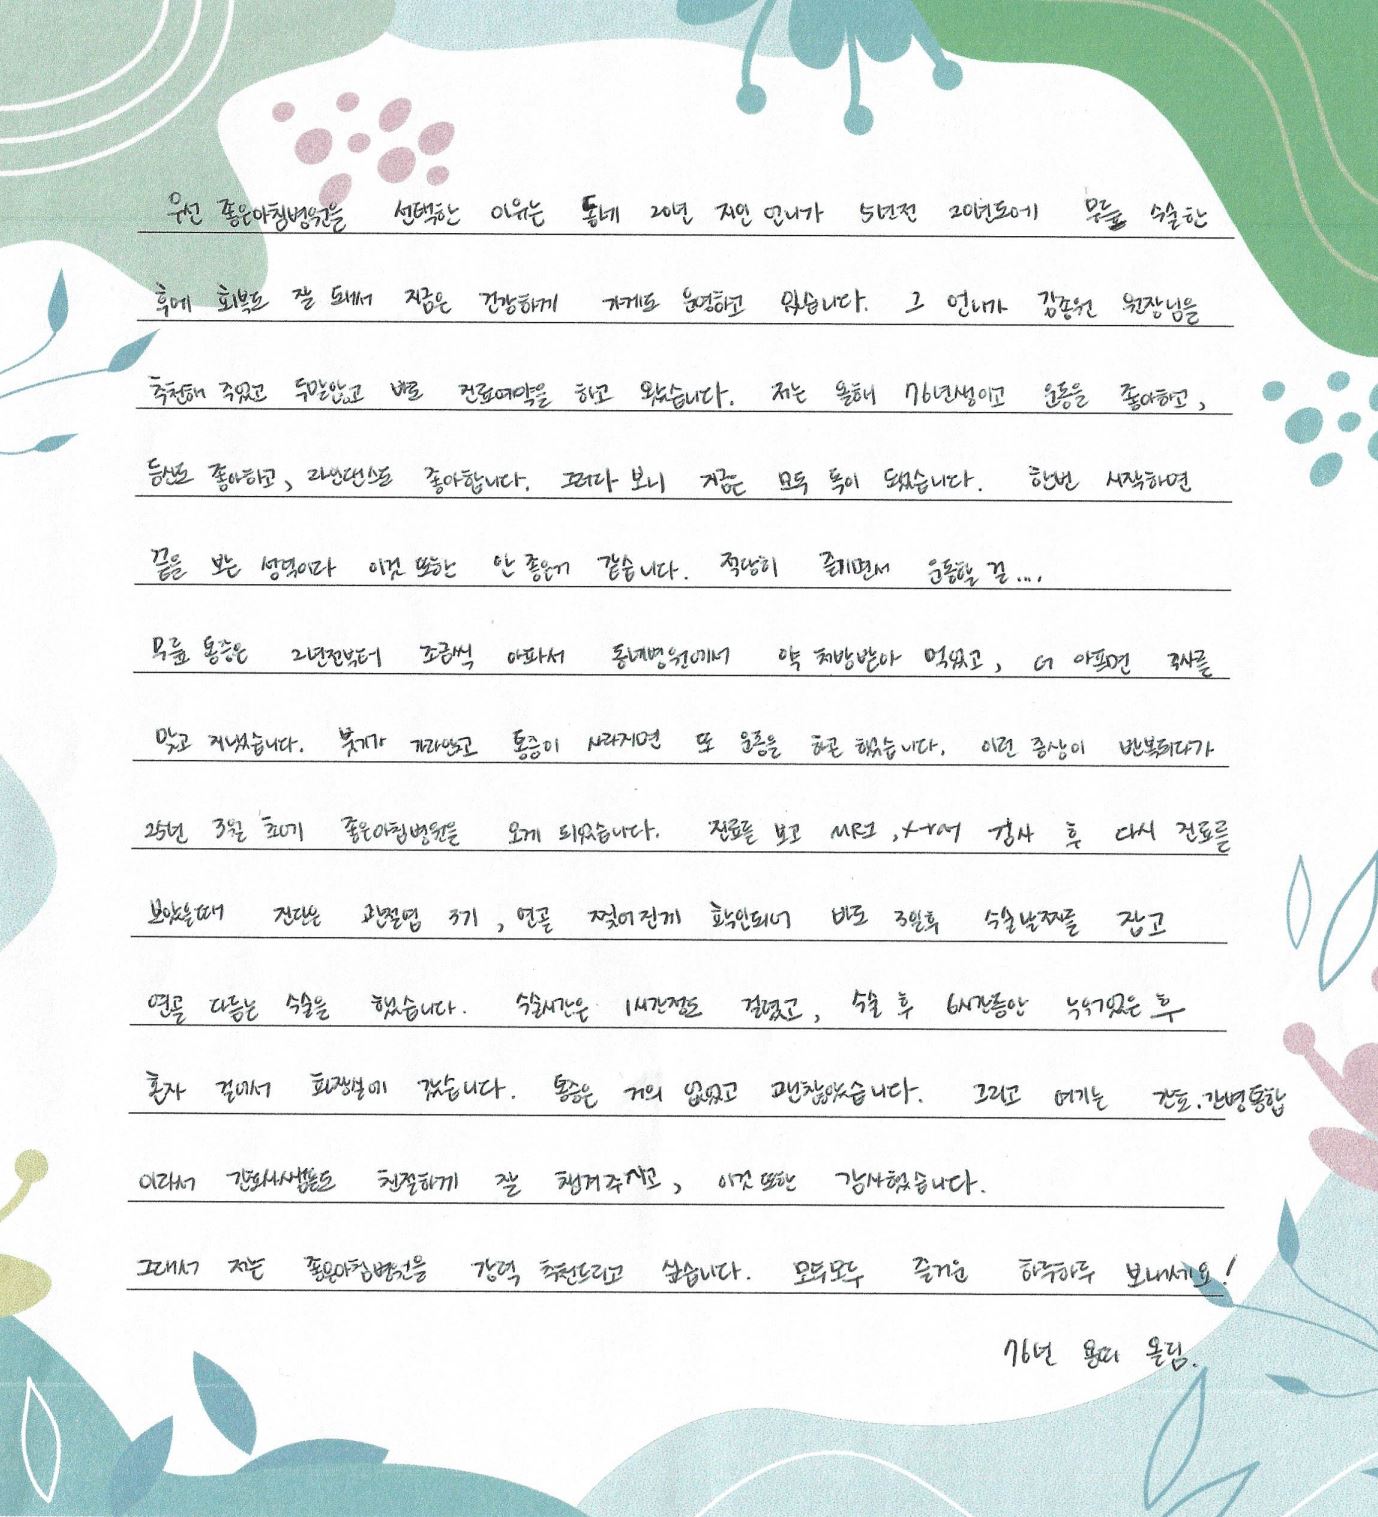 우선 좋은아침병원을 선택한 이유는 동네 20년 지인 언니가 5년전 20년도에 무릎 수술한
후에 회복도 잘 돼서 지금은 건강하게 가게도 운영하고 있습니다. 그 언니가 김종원 원장님을
추천해 주었고 두말않고 바로 진료예약을 하고 왔습니다. 저는 올해 76년생이고 운동을 좋아하고,
등산도 좋아하고, 라인댄스도 좋아합니다. 그러다 보니 지금은 모두 독이 되었습니다. 한번 시작하면
끝을 보는 성격이다 이것 또한 안 좋은거 같습니다. 적당히 즐기면서 운동할 걸....
무릎 통증은 2년전부터 조금씩 아파서 동네병원에서 약 처방받아 먹었고, 더 아프면 주사를
맞고 지냈습니다. 붓기가 가라앉고 통증이 사라지면 또 운동을 하곤 했었습니다. 이런 증상이 반복되다가
25년 3월 초기 좋은아침병원을 오게 되었습니다. 진료를 보고 MRI, X-ray 검사 후 다시 진료를
보았을때 진단은 관절염 3기, 연골 찢어진게 확인되어 바로 3일후 수술날짜를 잡고
연골 다듬는 수술을 했습니다. 수술시간은 1시간정도 걸렸고, 수술 후 6시간동안 누워있은 후
혼자 걸어서 화장실에 갔습니다. 통증은 거의 없었고 괜찮았습니다. 그리고 여기는 간호.간병통합
이라서 간호사쌤들도 친절하게 잘 챙겨주시고, 이것 또한 감사했습니다.
그래서 저는 좋은아침병원을 강력 추천드리고 싶습니다. 모두모두 즐거운 하루하루 보내세요!
76년 용띠 올림.